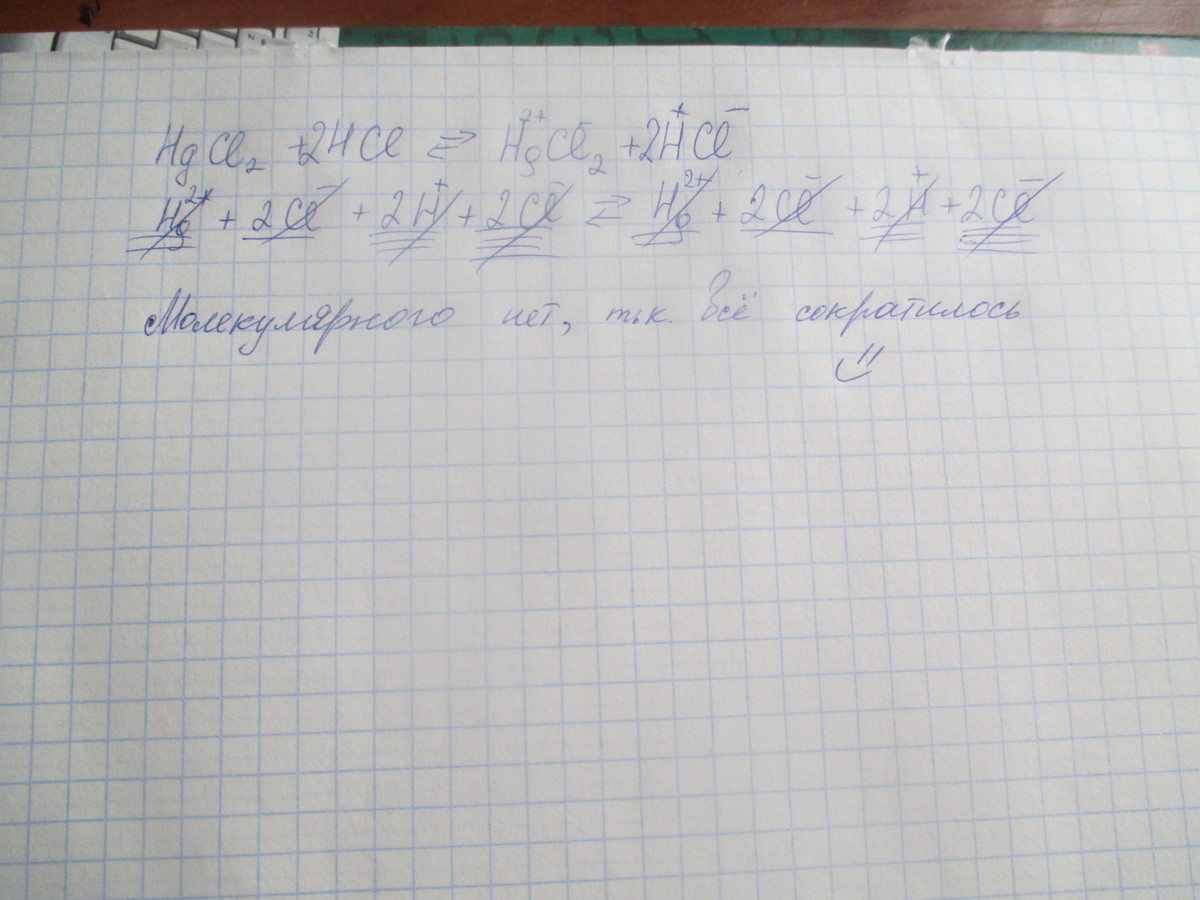 HgCl₂ + 2HCl ⇄ Hg²⁺Cl⁻₂ + 2H⁺Cl⁻
Hg²⁺ + 2Cl⁻ + 2H⁺ + 2Cl⁻ ⇄ Hg²⁺ + 2Cl⁻ + 2H⁺ + 2Cl⁻
Молекулярного нет, т.к. Всё сократилось